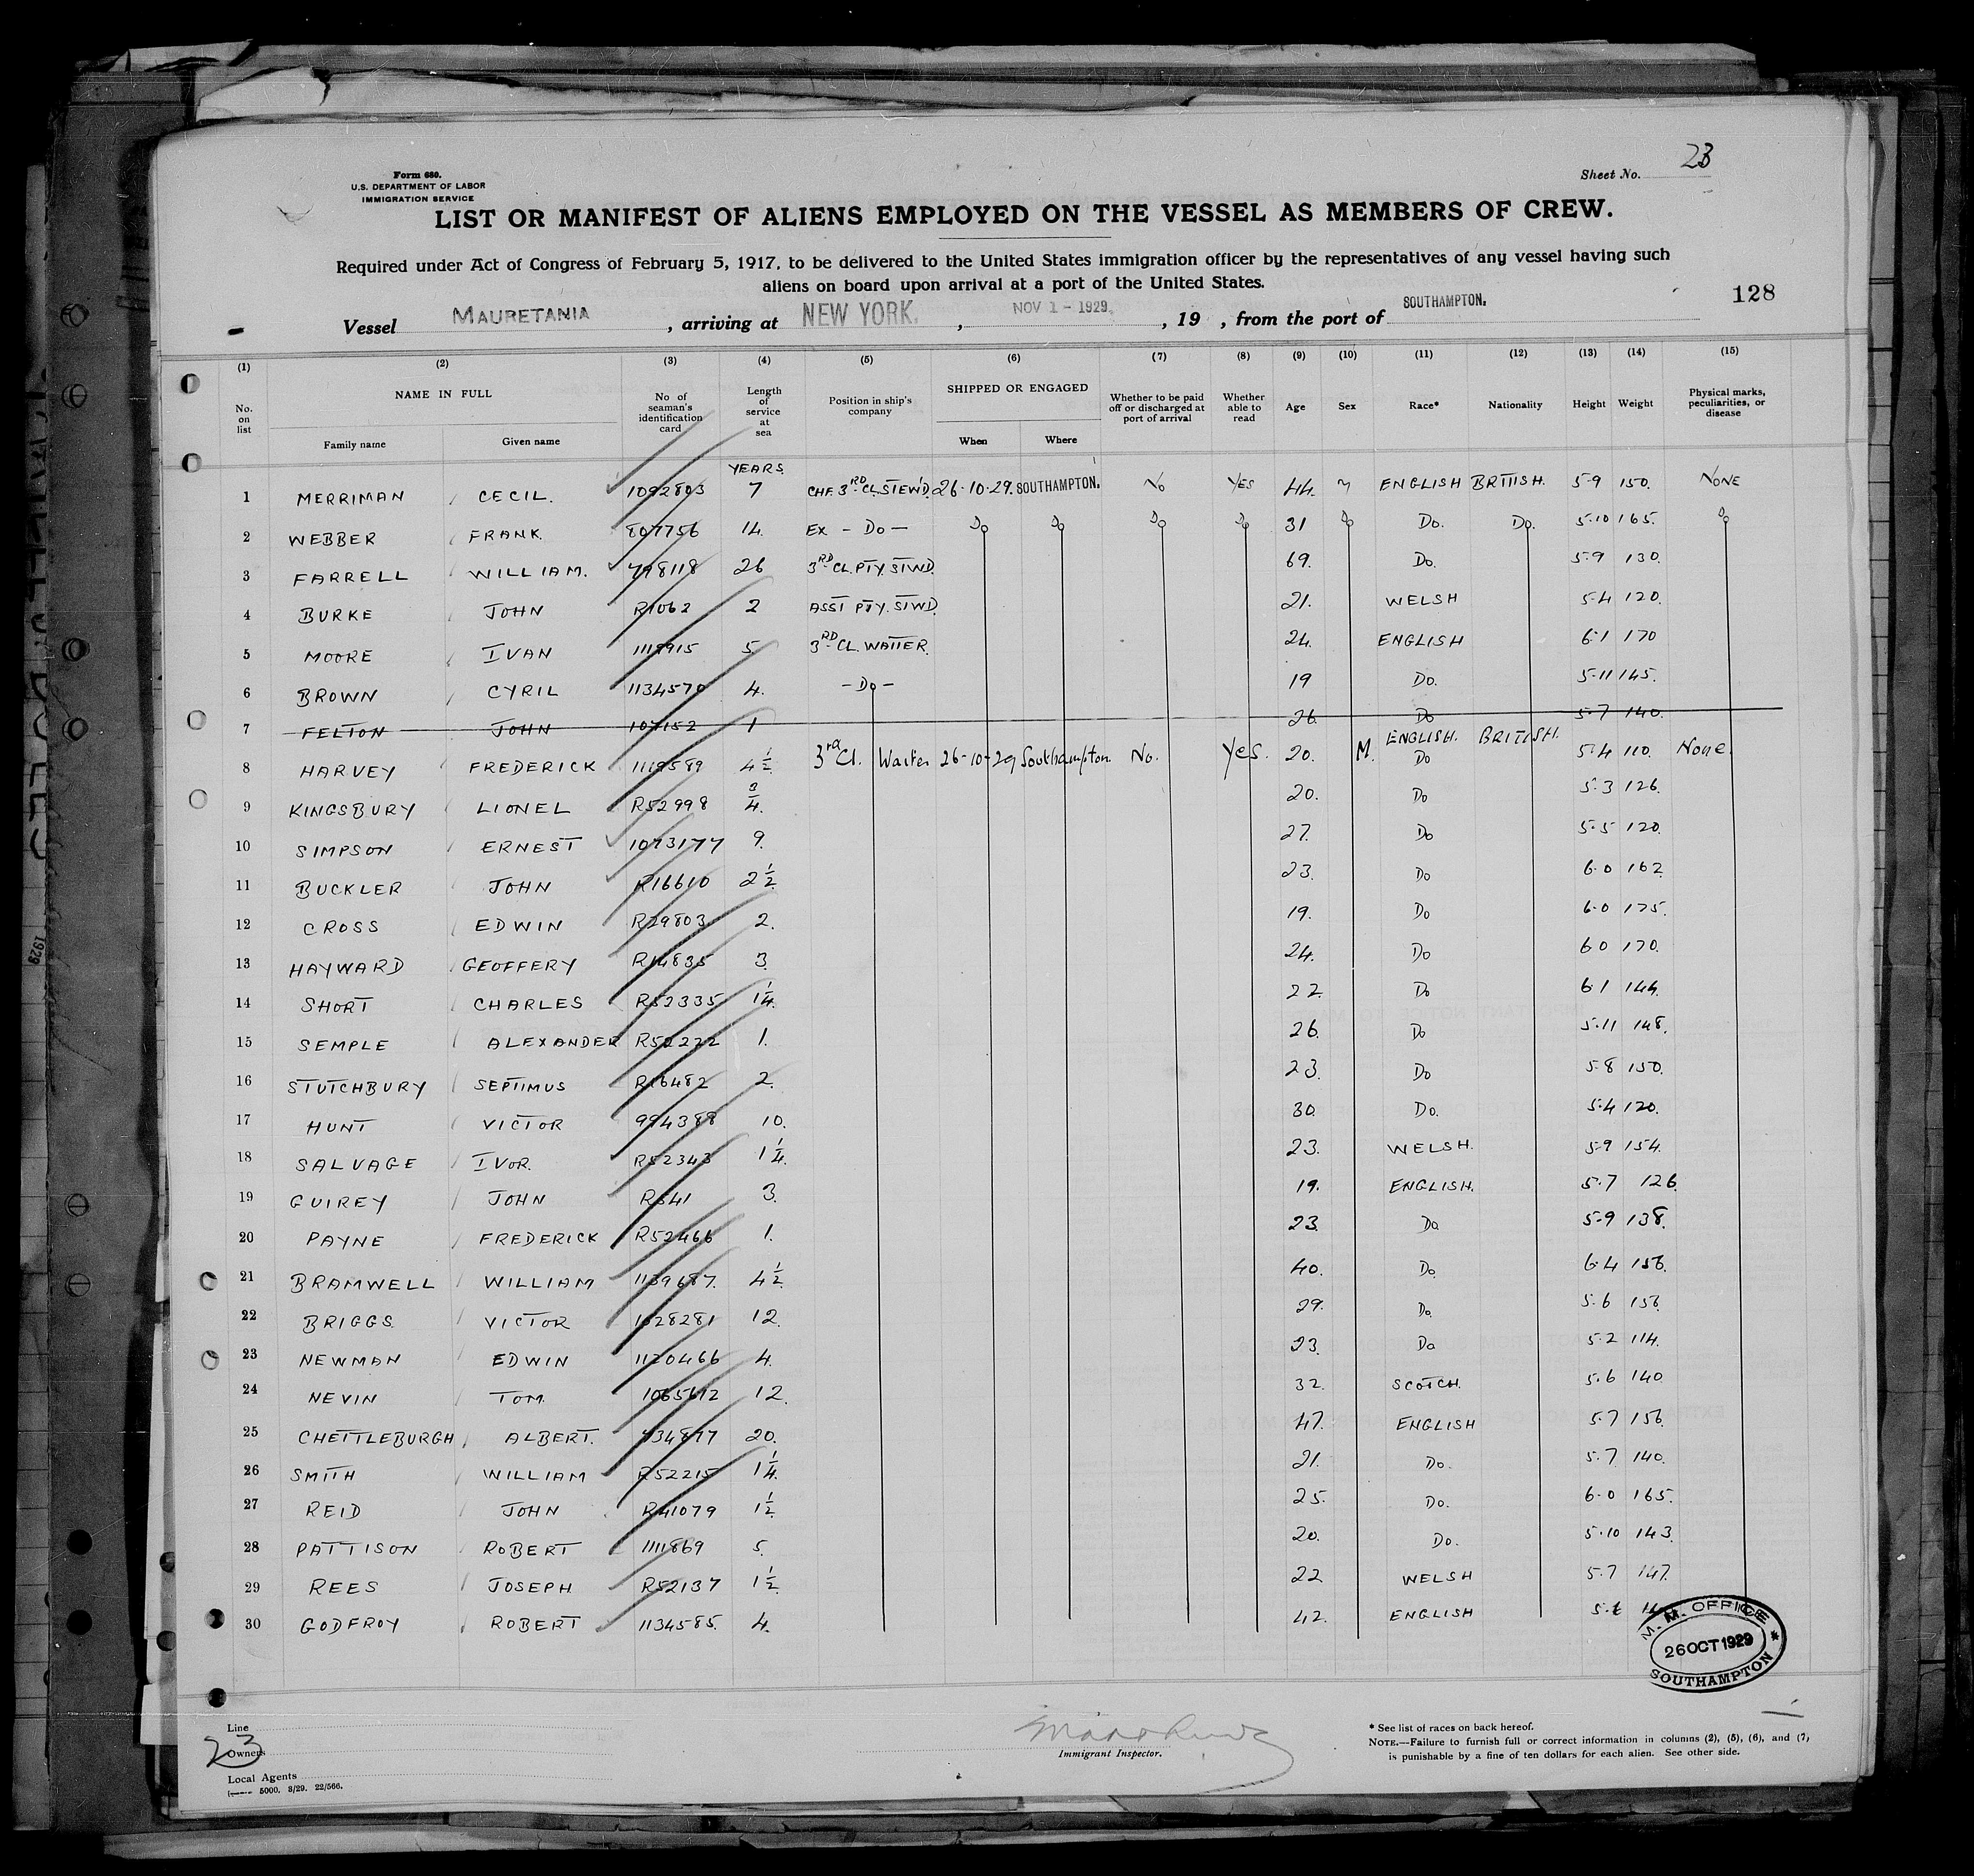 Form 680.
U.S. DEPARTMENT OF LABOR
IMMIGRATION SERVICE
Sheet No. 23
LIST OR MANIFEST OF ALIENS EMPLOYED ON THE VESSEL AS MEMBERS OF CREW.
Required under Act of Congress of February 5, 1917, to be delivered to the United States immigration officer by the representatives of any vessel having such
aliens on board upon arrival at a port of the United States.
128
Vessel MAURETANIA, arriving at NEW YORK, NOV 1 - 1929, 19 , from the port of SOUTHAMPTON.
(1) (2) (3) (4) (5) (6) (7) (8) (9) (10) (11) (12) (13) (14) (15)
No. on list
NAME IN FULL
Family name
Given name
No of seaman's identification card
Length of service at sea
Position in ship's company
SHIPPED OR ENGAGED
When
Where
Whether to be paid off or discharged at port of arrival
Whether able to read
Age
Sex
Race*
Nationality
Height
Weight
Physical marks, peculiarities, or disease
YEARS
1 MERRIMAN CECIL. 1092803 7 CHF. 3RD CL STEWD. 26-10-29. SOUTHAMPTON. No YES 44. M ENGLISH BRITISH. 5-9 150. NONE
2 WEBBER FRANK. 807756 14. Ex - Do - Do Do Do Do 31 Do Do. Do. 5-10 165. Do
3 FARRELL WILLIAM. 798118 26 3RD CL. PTY. STWD. 69. Do. 5-9 130.
4 BURKE JOHN R1062 2 ASST PTY. STWD. 21. WELSH 5-4 120.
5 MOORE IVAN 1118915 5 3RD CL. WAITER. 24. ENGLISH 6-1 170
6 BROWN CYRIL 1134570 4. - Do - 19 Do. 5-11 145.
7 FELTON JOHN 107152 1 26. Do 5-7 140.
8 HARVEY FREDERICK 1119589 4½ 3rd Cl. Waiter 26-10-29 Southampton No. Yes. 20. M. ENGLISH. Do BRITISH. 5-4 110. None.
9 KINGSBURY LIONEL R52998 ¾. 20. Do 5-3 126.
10 SIMPSON ERNEST 1073177 9. 27. Do 5-5 120.
11 BUCKLER JOHN R16610 2½ 23. Do 6-0 162
12 CROSS EDWIN R29803 2. 19. Do 6-0 175.
13 HAYWARD GEOFFERY R14835 3. 24. Do 6-0 170.
14 SHORT CHARLES R52335 1¼. 22. Do 6-1 144.
15 SEMPLE ALEXANDER R52222 1. 26. Do 5-11 148.
16 STUTCHBURY SEPTIMUS R16482 2. 23. Do 5-8 150.
17 HUNT VICTOR 994388 10. 30. Do. 5-4 120.
18 SALVAGE IVOR. R52343 1¼. 23. WELSH. 5-9 154.
19 GUIREY JOHN R541 3. 19. ENGLISH. 5-7 126.
20 PAYNE FREDERICK R52466 1. 23. Do. 5-9 138.
21 BRAMWELL WILLIAM 1139687. 4½ 40. Do. 6-4 156.
22 BRIGGS VICTOR 1028281 12. 29. Do. 5-6 156.
23 NEWMAN EDWIN 1120466 4. 23. Do 5-2 114.
24 NEVIN TOM. 1065612 12. 32. SCOTCH. 5-6 140.
25 CHETTLEBURGH ALBERT. 734877 20. 47. ENGLISH 5-7 156.
26 SMITH WILLIAM R52215 1¼. 21. Do. 5-7 140.
27 REID JOHN R41079 1½ 25. Do. 6-0 165.
28 PATTISON ROBERT 1111869 5. 20. Do. 5-10 143.
29 REES JOSEPH R52137 1½ 22 WELSH 5-7 147.
30 GODFROY ROBERT 1134585. 4. 42. ENGLISH
M. M. OFFICE
26 OCT 1929
SOUTHAMPTON
Line
23
Owners
Local Agents
5000. 8/29. 22/566.
Immigrant Inspector.
* See list of races on back hereof.
NOTE.—Failure to furnish full or correct information in columns (2), (5), (6), and (7)
is punishable by a fine of ten dollars for each alien. See other side.
1929